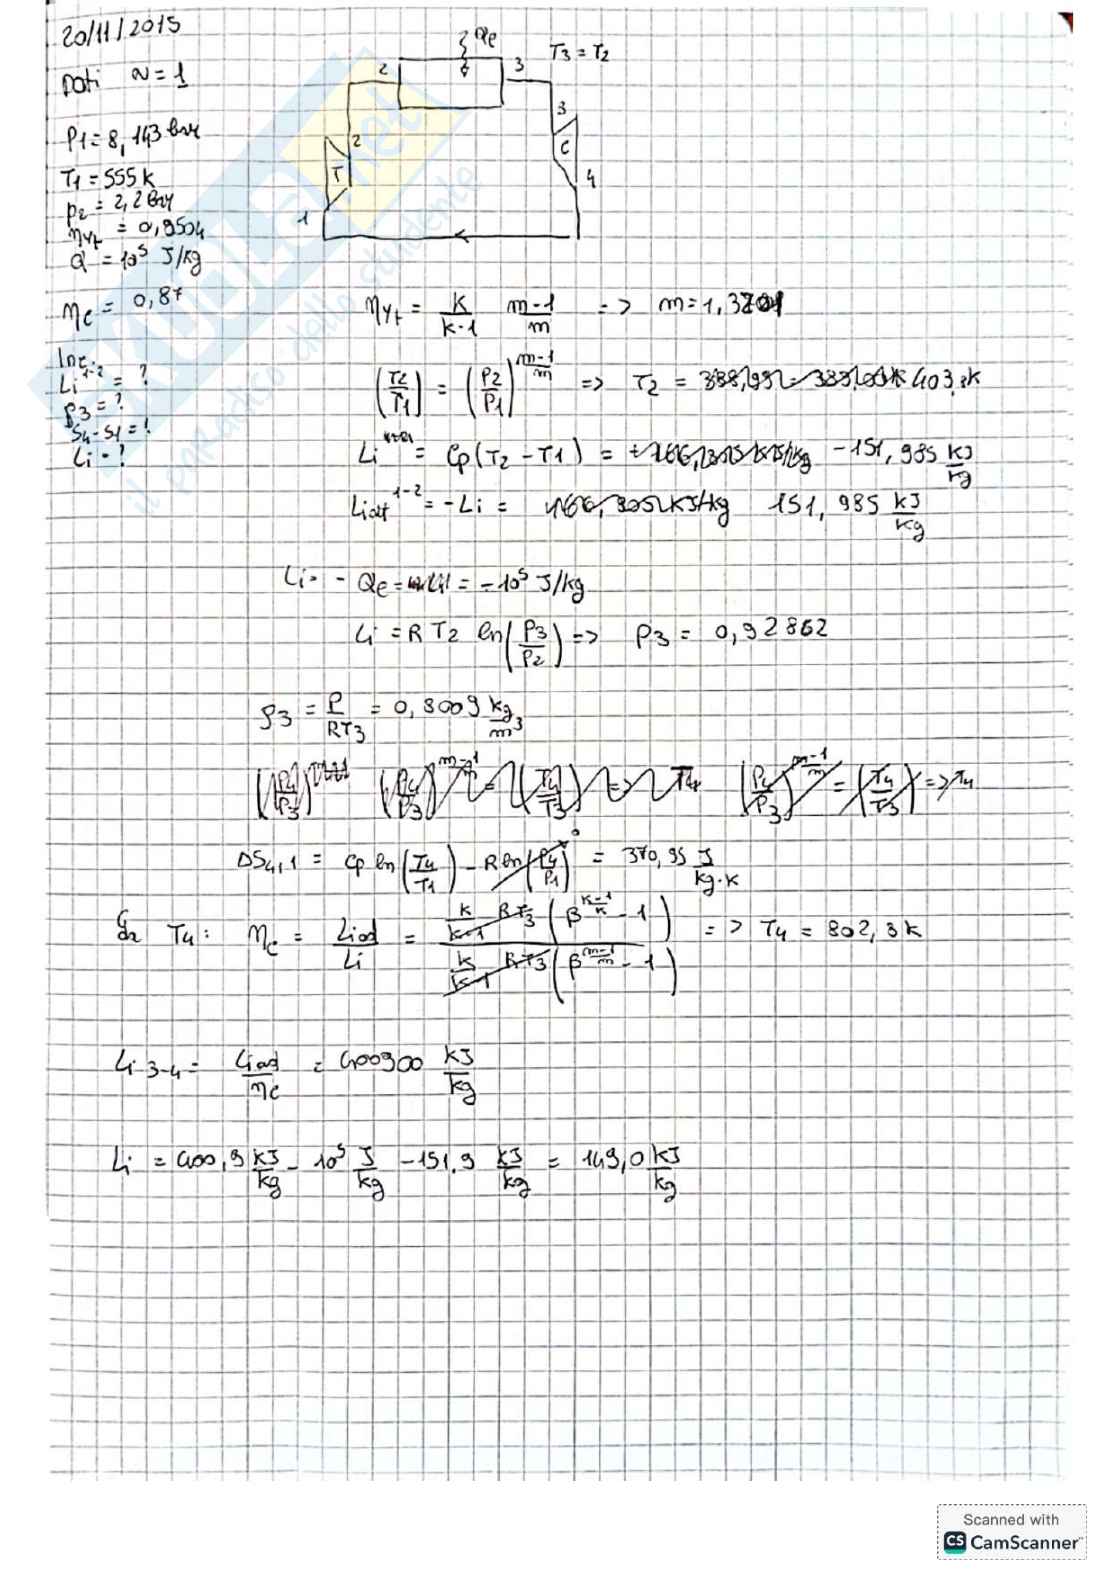 20/11/2015
Dati N = 1
P1 = 8,143 bar
T1 = 555 K
P2 = 2,2 bar
ηyt = 0,9504
Q = 10⁵ J/kg
ηc = 0,87
Inc.
Li 1-2 = ?
ρ3 = ?
S4-S1 = ?
Li = ?
2 Qe 3 T3 = T2
2 3
T C
1 4
ηyt = K/(K-1) (m-1)/m => m = 1,3701
(T2/T1) = (P2/P1)^((m-1)/m) => T2 = 403,2K
Li = Cp (T2 - T1) = -151,985 KJ/kg
Liatt 1-2 = -Li = 151,985 KJ/kg
Li = - Qe = = -10⁵ J/kg
Li = R T2 ln(P3/P2) => P3 = 0,92862
ρ3 = P/(RT3) = 0,8009 kg/m³
(P4/P3) (P4/P3)^((m-1)/m) = (T4/T3) => T4 (P4/P3)^((m-1)/m) = (T4/T3) => T4
ΔS4,1 = Cp ln(T4/T1) - R ln(P4/P1) 0 = 370,95 J/(kg·K)
T4: ηc = Liad/Li = (K/(K-1) RT3 (β^((K-1)/K) - 1))/(K/(K-1) RT3 (β^((m-1)/m) - 1)) => T4 = 802,3K
Li 3-4 = Liad/ηc = 400900 KJ/kg
Li = 400,9 KJ/kg - 10⁵ J/kg - 151,9 KJ/kg = 149,0 KJ/kg
SKUOLA.net
il paradiso dello studente
Scanned with
CS CamScanner